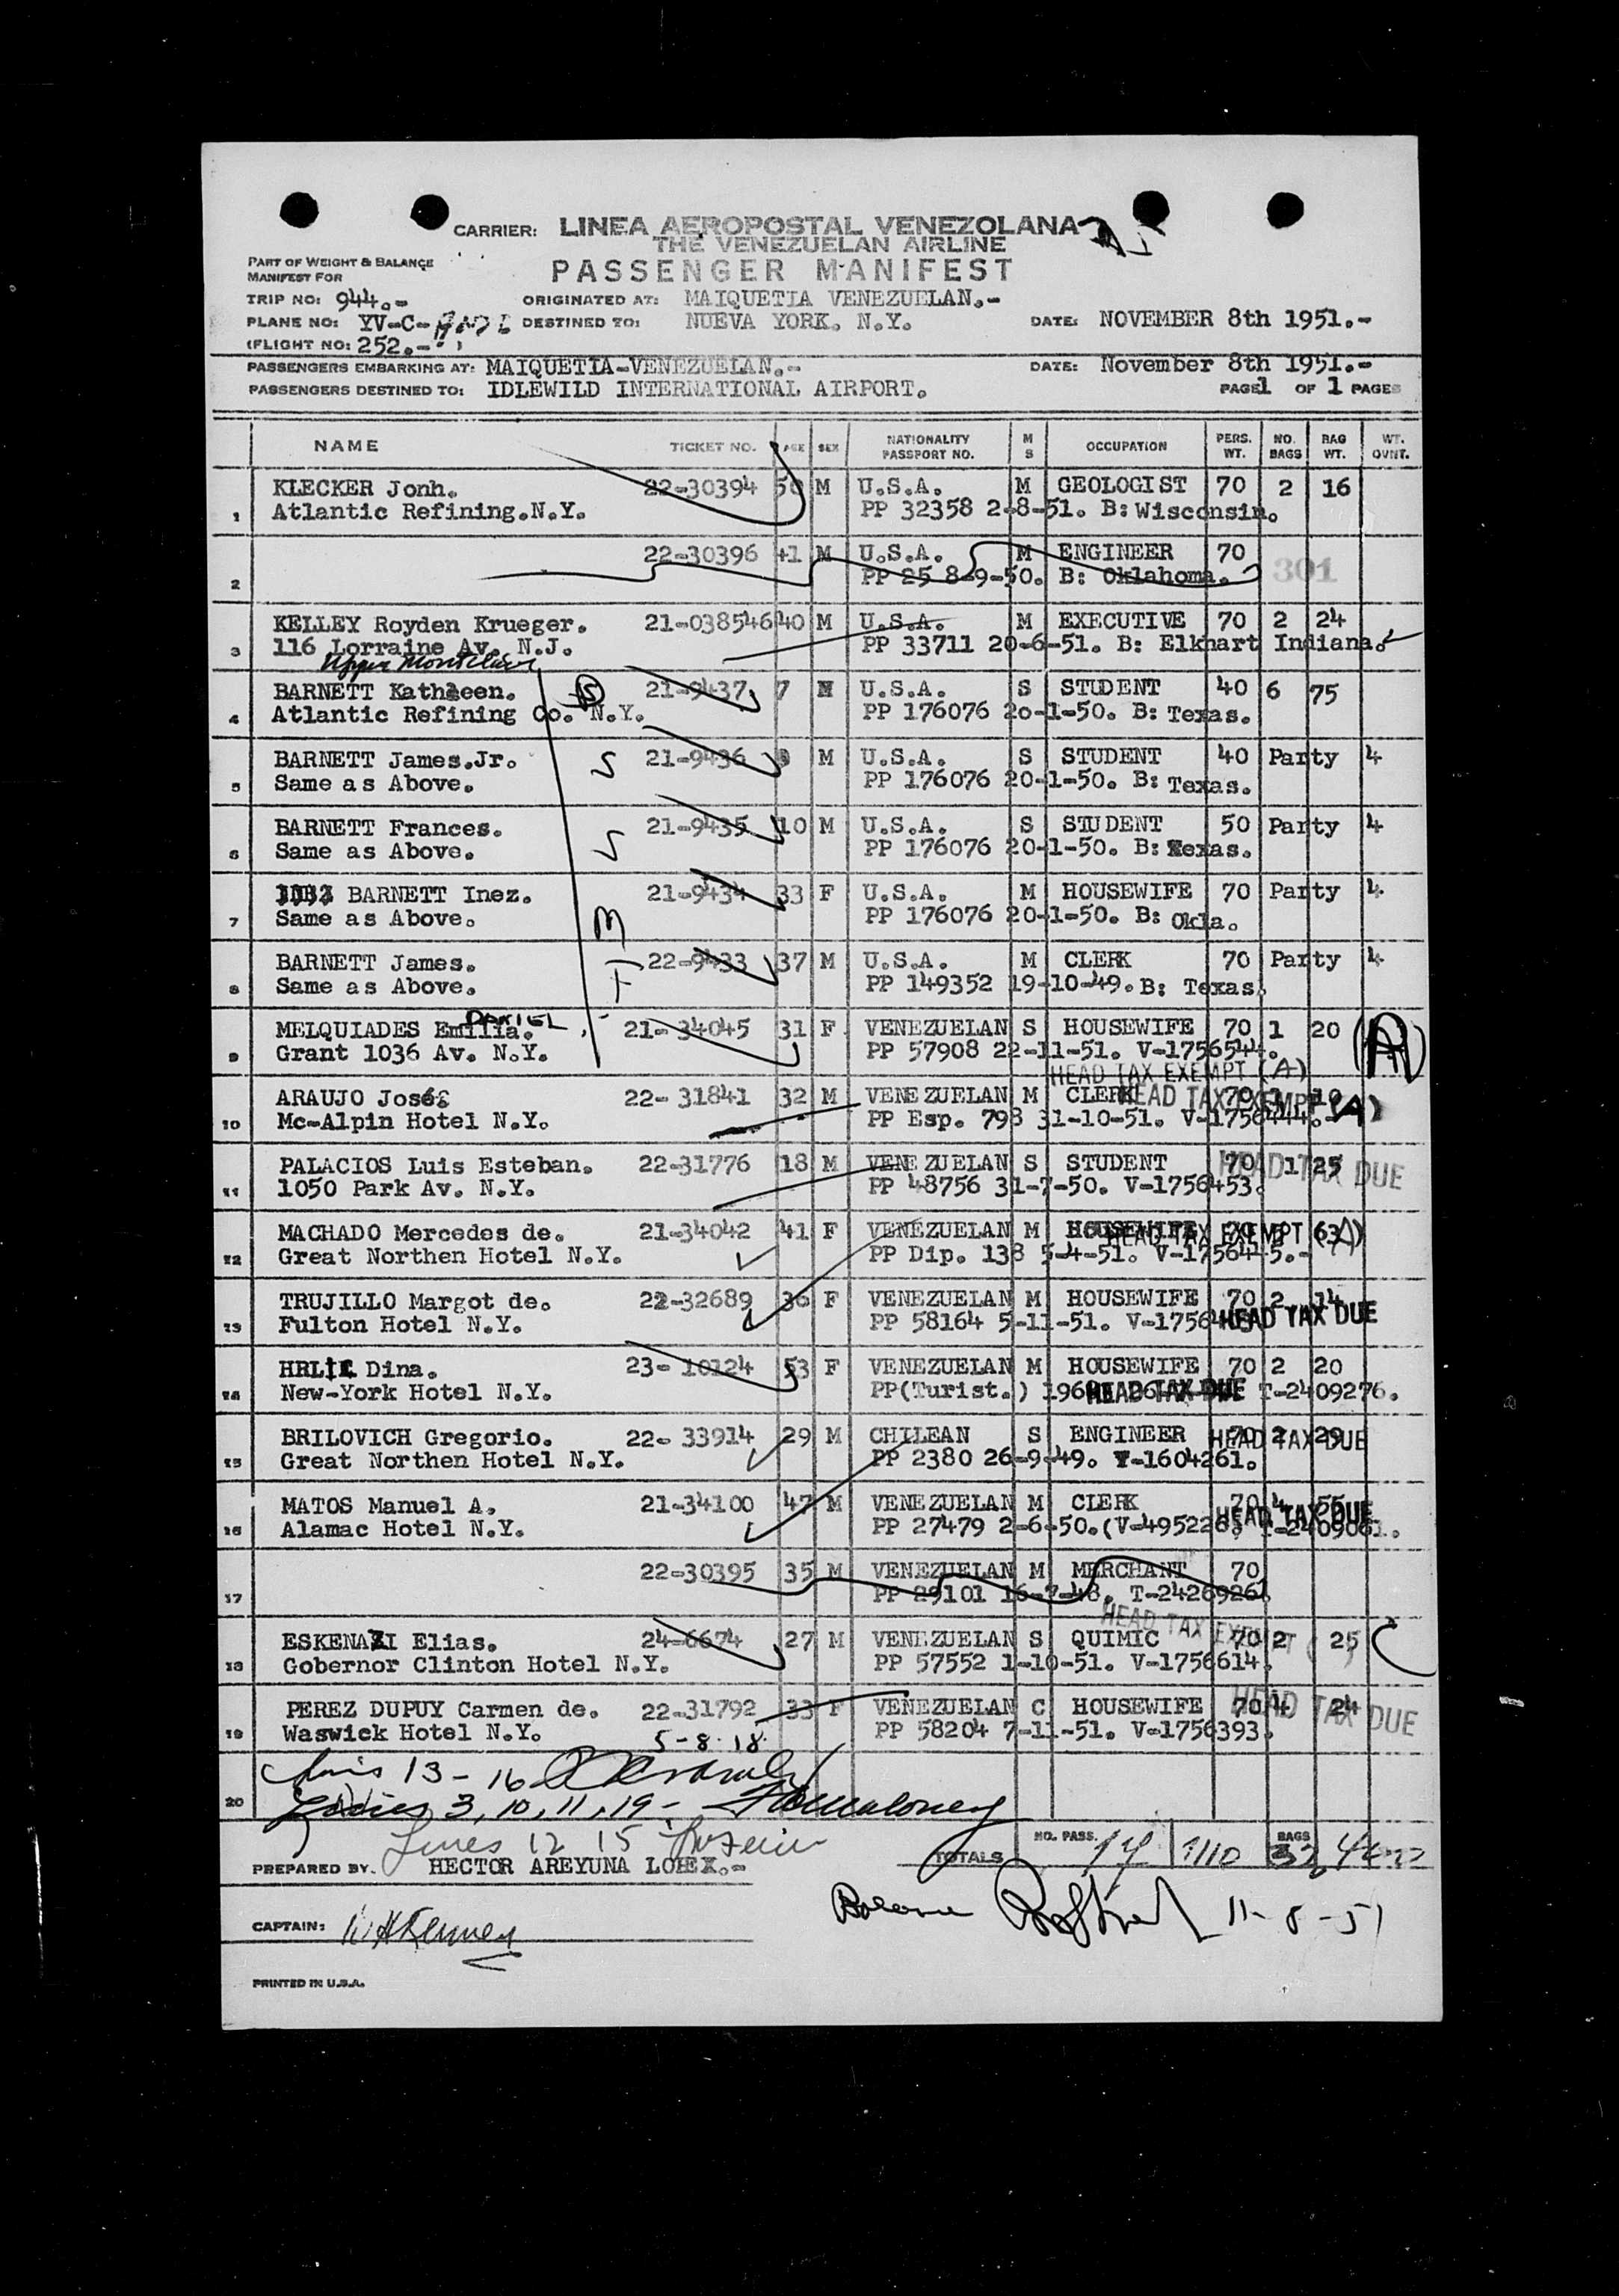 CARRIER: LINEA AEROPOSTAL VENEZOLANA
THE VENEZUELAN AIRLINE
PART OF WEIGHT & BALANCE
MANIFEST FOR
PASSENGER MANIFEST
TRIP NO: 944.- ORIGINATED AT: MAIQUETIA VENEZUELAN.-
PLANE NO: YV-C- DESTINED TO: NUEVA YORK. N.Y. DATE: NOVEMBER 8th 1951.-
(FLIGHT NO: 252.- )
PASSENGERS EMBARKING AT: MAIQUETIA-VENEZUELAN.- DATE: November 8th 1951.-
PASSENGERS DESTINED TO: IDLEWILD INTERNATIONAL AIRPORT. PAGE 1 OF 1 PAGES
NAME TICKET NO. AGE SEX NATIONALITY PASSPORT NO. M S OCCUPATION PERS. WT. NO. BAGS BAG WT. WT. OVNT.
KLECKER Jonh. 22-30394 50 M U.S.A. M GEOLOGIST 70 2 16
1 Atlantic Refining.N.Y. PP 32358 2-8-51. B: Wisconsin.
22-30396 41 M U.S.A. M ENGINEER 70
2 PP 25 8-9-50. B: Oklahoma. 301
KELLEY Royden Krueger. 21-038546 40 M U.S.A. M EXECUTIVE 70 2 24
3 116 Lorraine Av. N.J. PP 33711 20-6-51. B: Elkhart Indiana.
Upper Montclair
BARNETT Kathleen. S 21-9437 7 M U.S.A. S STUDENT 40 6 75
4 Atlantic Refining Co. N.Y. PP 176076 20-1-50. B: Texas.
BARNETT James.Jr. S 21-9436 M U.S.A. S STUDENT 40 Party 4
5 Same as Above. PP 176076 20-1-50. B: Texas.
BARNETT Frances. S 21-9435 10 M U.S.A. S STUDENT 50 Party 4
6 Same as Above. PP 176076 20-1-50. B: Texas.
BARNETT Inez. 21-9434 33 F U.S.A. M HOUSEWIFE 70 Party 4
7 Same as Above. M PP 176076 20-1-50. B: Okla.
BARNETT James. 22-9433 37 M U.S.A. M CLERK 70 Party 4
8 Same as Above. PP 149352 19-10-49. B: Texas.
DANIEL
MELQUIADES Emilia. 21-34045 31 F VENEZUELAN S HOUSEWIFE 70 1 20 (A)
9 Grant 1036 Av. N.Y. PP 57908 22-11-51. V-1756544.
HEAD TAX EXEMPT (A)
ARAUJO José 22-31841 32 M VENEZUELAN M CLERK 70 1 19 HEAD TAX EXEMPT (A)
10 Mc-Alpin Hotel N.Y. PP Esp. 798 31-10-51. V-1756444.
PALACIOS Luis Esteban. 22-31776 18 M VENEZUELAN S STUDENT 70 1 25 HEAD TAX DUE
11 1050 Park Av. N.Y. PP 48756 31-7-50. V-1756453.
MACHADO Mercedes de. 21-34042 41 F VENEZUELAN M HOUSEWIFE 70 63 HEAD TAX EXEMPT (A)
12 Great Northen Hotel N.Y. PP Dip. 138 5-4-51.
TRUJILLO Margot de. 22-32689 36 F VENEZUELAN M HOUSEWIFE 70 2 14
13 Fulton Hotel N.Y. PP 58164 5-11-51. HEAD TAX DUE
Dina. 23-10124 53 F VENEZUELAN M HOUSEWIFE 70 2 20
14 New-York Hotel N.Y. PP(Turist.) HEAD TAX DUE T-2409276.
BRILOVICH Gregorio. 22-33914 29 M CHILEAN S ENGINEER 70 2 29 HEAD TAX DUE
15 Great Northen Hotel N.Y. PP 2380 26-9-49. V-1604261.
MATOS Manuel A. 21-34100 47 M VENEZUELAN M CLERK 70 4 55 HEAD TAX DUE
16 Alamac Hotel N.Y. PP 27479 2-6-50.
22-30395 35 M VENEZUELAN M MERCHANT 70
17 PP 29101 16-7-48. T-2426926.
HEAD TAX EXEMPT ( )
ESKENAZI Elias. 24-6674 27 M VENEZUELAN S QUIMIC 70 2 25
18 Gobernor Clinton Hotel N.Y. PP 57552 1-10-51. V-1756614.
PEREZ DUPUY Carmen de. 22-31792 33 F VENEZUELAN C HOUSEWIFE 70 4 24 HEAD TAX DUE
19 Waswick Hotel N.Y. PP 58204 7-11-51. V-1756393.
5-8-18
13-16
20 3, 10, 11, 19 -
Lines 12 15
TOTALS NO. PASS. 17 1110 BAGS 32
PREPARED BY. HECTOR AREYUNA LOPEX.-
11-8-51
CAPTAIN:
PRINTED IN U.S.A.